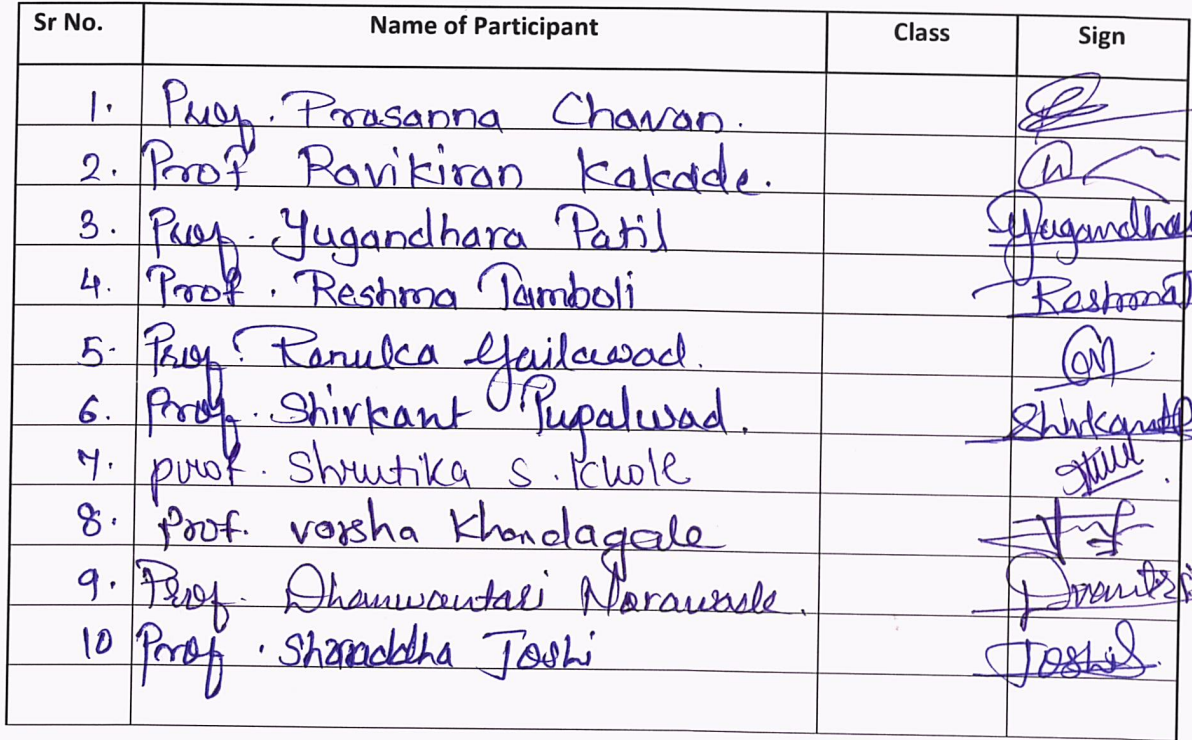 Sr No. Name of Participant Class Sign
1. Prof. Prasanna Chavan.
2. Prof Ravikiran Kakade.
3. Prof. Yugandhara Patil Yugandhara
4. Prof. Reshma Tamboli ReshmaT
5. Prof. Renuka Gailawad.
6. Prof. Shirkant Pupalwad. ShirkantP
7. prof. Shrutika S. Khole
8. Prof. varsha Khandagale
9. Prof. Dhanwantari
10 Prof. Shraddha Joshi JoshiS.